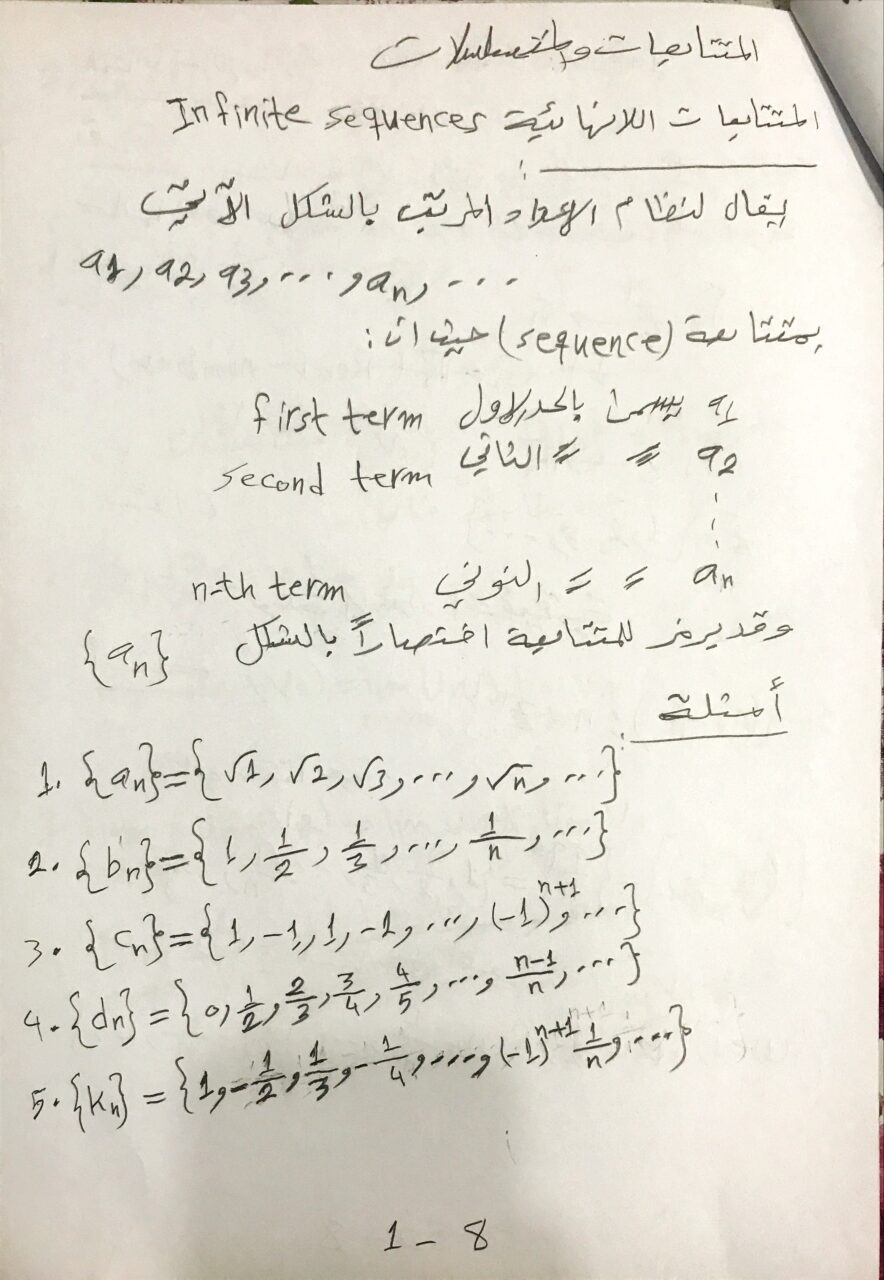 المتتابعات والمتسلسلات
المتتابعات اللانهائية Infinite sequences :
يقال لنظام الاعداد المرتب بالشكل الآتي
a1, a2, a3, ..., an, ...
بمتتابعة (sequence) حيث ان:
a1 يسمى بالحد الاول first term
a2 〃 〃 الثاني second term
⋮
an 〃 〃 النوني n-th term
وقد يرمز للمتتابعة اختصاراً بالشكل {an}
أمثلة :
1. {an}={√1, √2, √3, ..., √n, ...}
2. {bn}={1, 1/2, 1/3, ..., 1/n, ...}
3. {cn}={1, -1, 1, -1, ..., (-1)^n+1, ...}
4. {dn}={0, 1/2, 2/3, 3/4, 4/5, ..., n-1/n, ...}
5. {kn}={1, -1/2, 1/3, -1/4, ..., (-1)^n+1 1/n, ...}
1 - 8